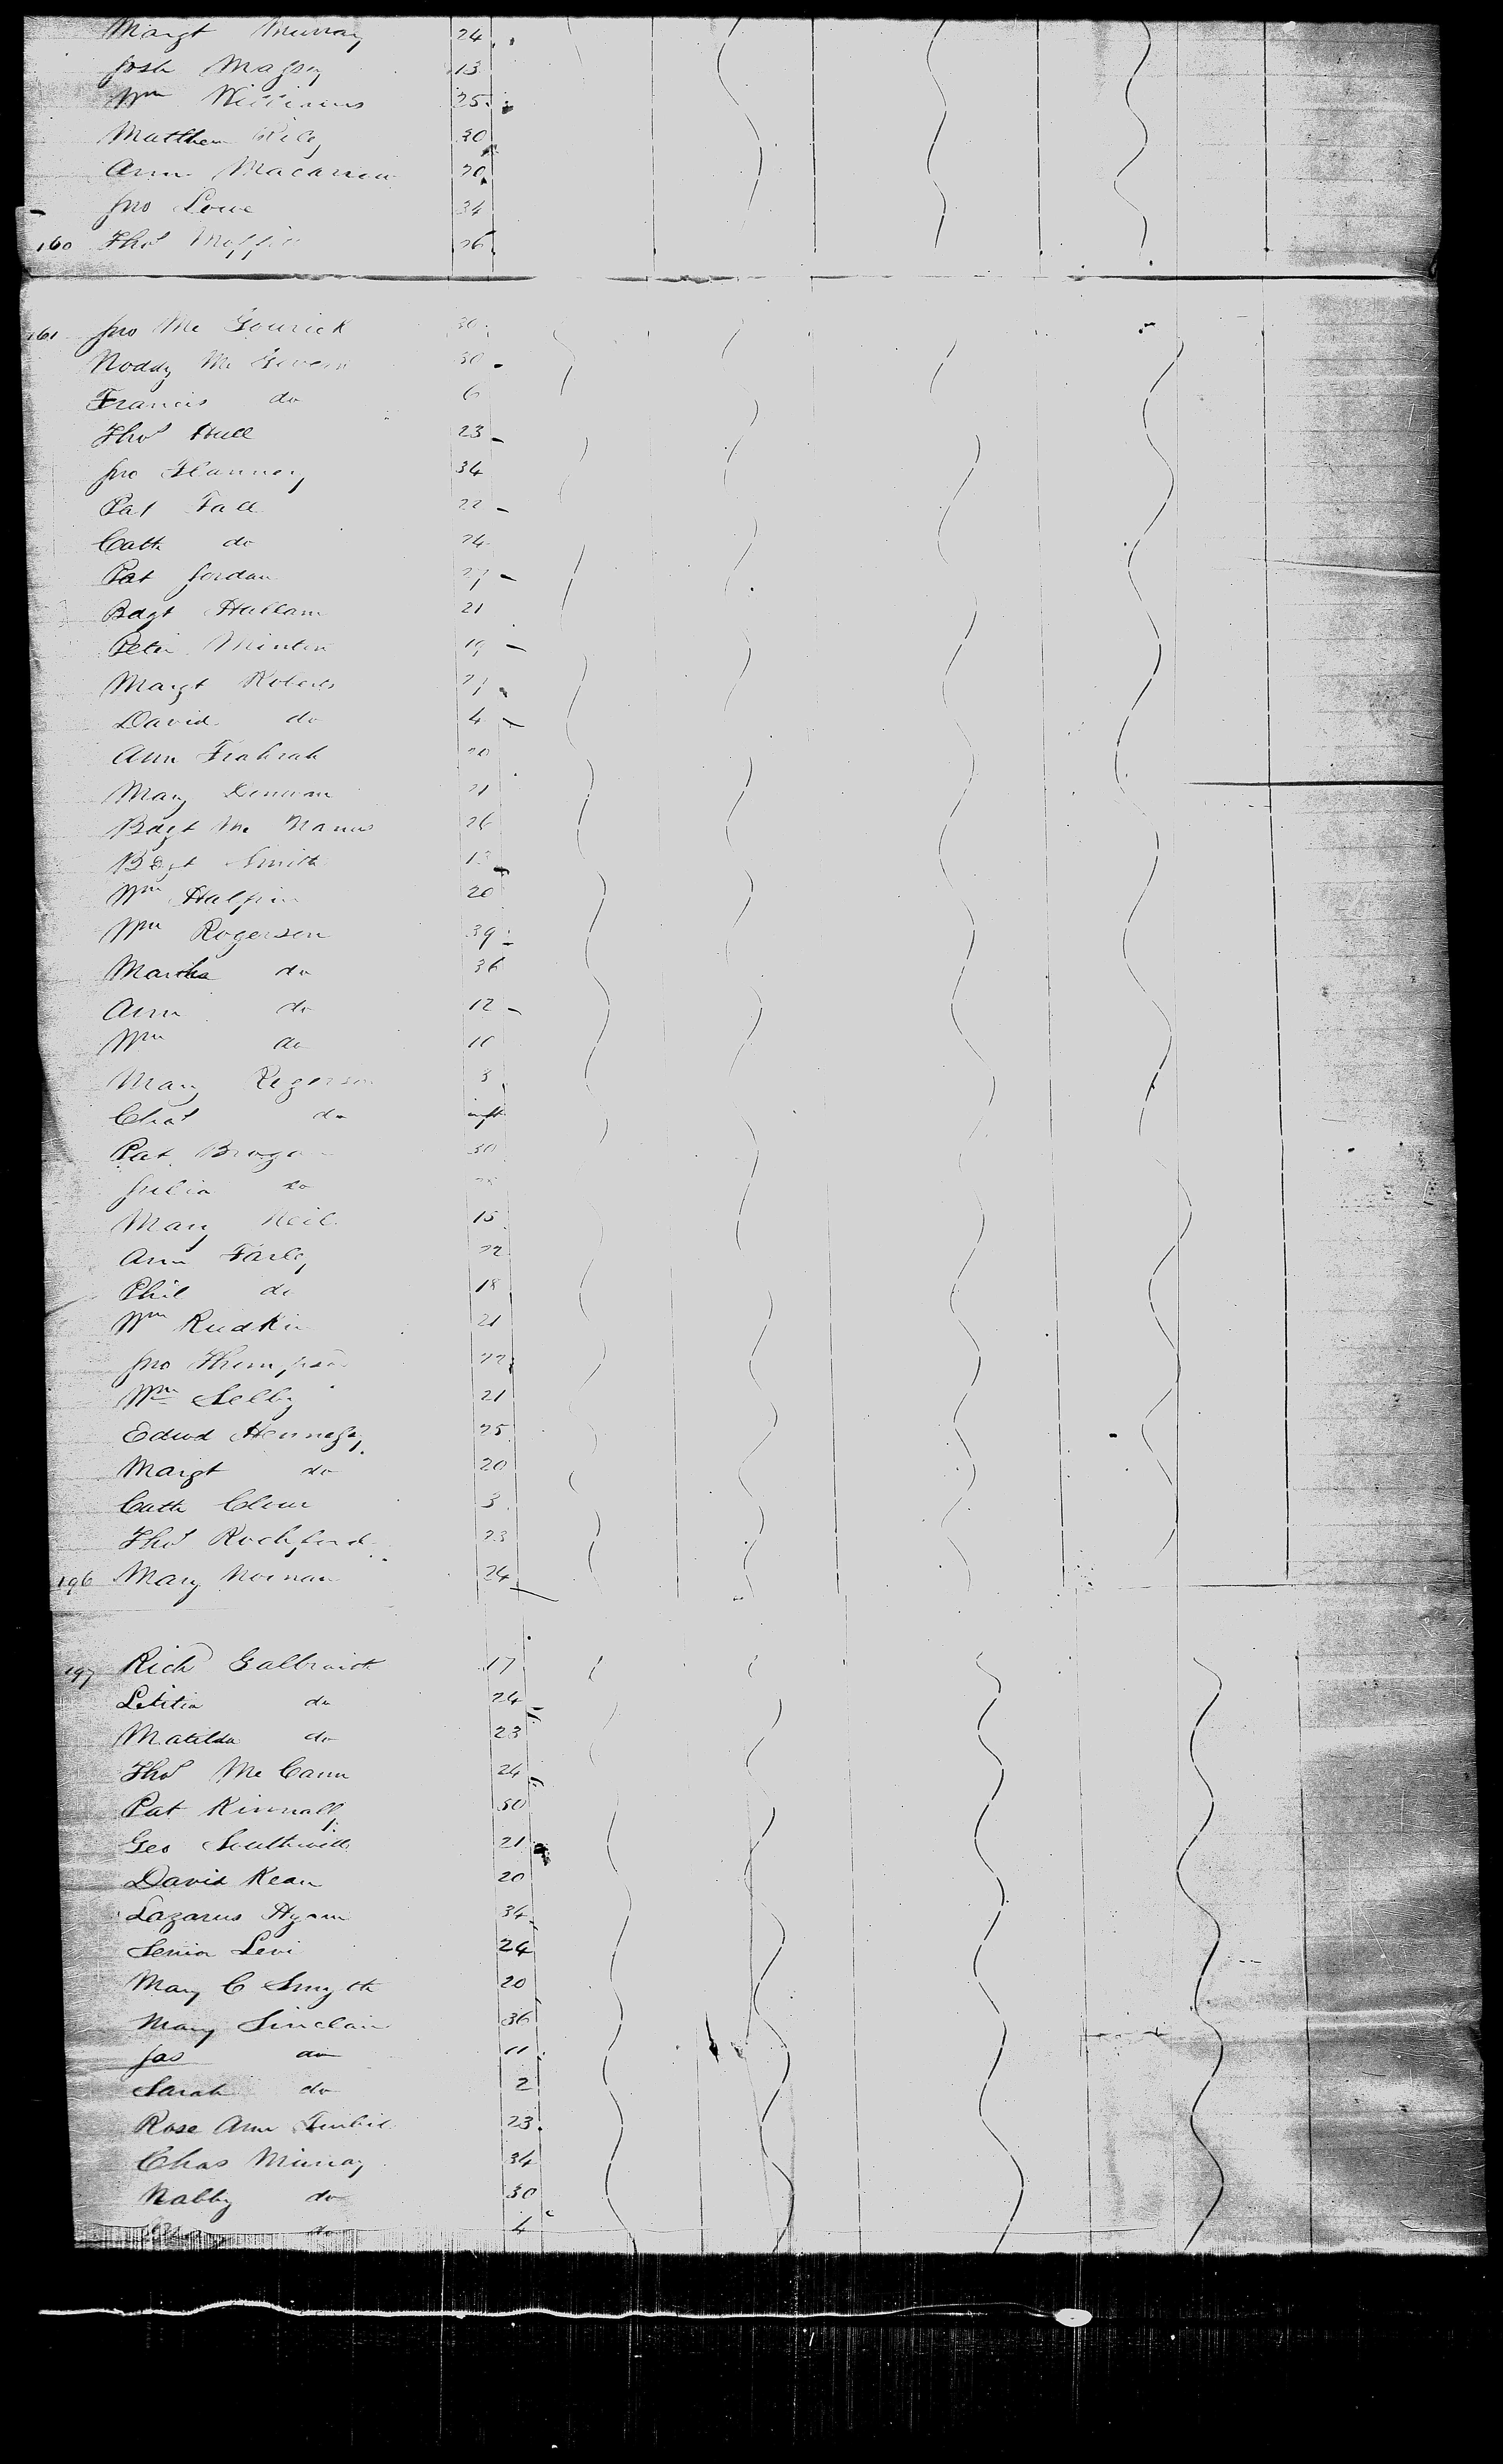 Margt Murray 24
Josh 13
Wm Williams 25
Matthew Riley 30
Ann 20
Jno Lowe 34
160 Thos Moffit 26
161 Jno Mc Gourick 30
Noddy Mc Govern 30
Francis do 6
Thos Hull 23
Jno Flannery 34
Pat Fall 22
Cath do 24
Pat Jordan 27
Bdgt Hallam 21
Peter Minton 19
Margt Roberts 27
David do 4
Ann 20
Mary 21
Bdgt Mc Manus 26
Bdgt Smith 13
Wm Halpin 20
Wm Rogerson 39
Martha do 36
Ann do 12
Wm do 10
Mary Rogerson 3
Chas do inft
Pat 30
Julia do
Mary Neil 15
Ann Farley 22
Phil do 18
Wm Rudkin 21
Jno Thompson 22
Wm Selby 21
Edwd Hennessy 25
Margt do 20
Cath 3
Thos Rochford 23
196 Mary Noonan 24
197 Rich Galbraith 17
Letitia do 24
Matilda do 23
Thos Mc Cann 24
Pat 30
Geo Southwell 21
David Kean 20
Lazarus Hyam 34
Levi 24
Mary C Smyth 20
Mary Sinclair 36
Jas do 11
Sarah do 2
Rose Ann 23
Chas Murray 34
Nabby do 30
do 4